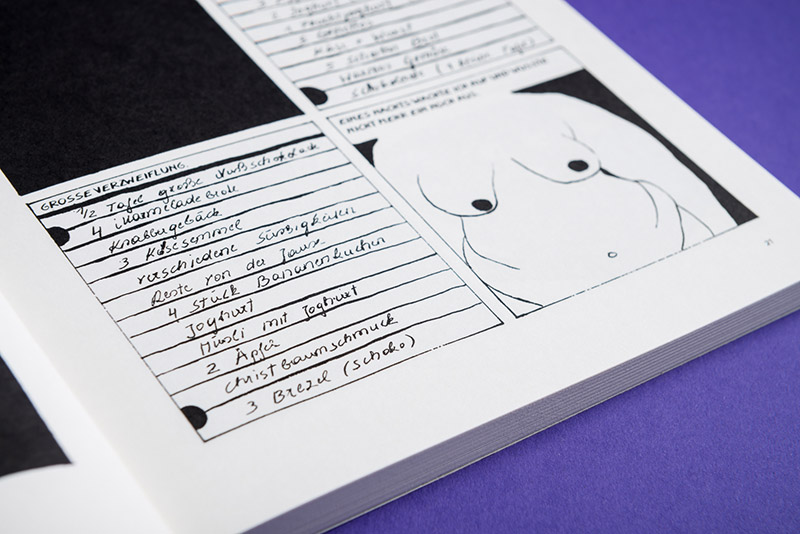 Käse + Wurst
3 Scheiben Brot
Schokolade (1
EINES NACHTS WACHTE ICH AUF UND WUSSTE
NICHT MEHR EIN NOCH AUS.
GROSSE VERZWEIFLUNG.
1/2 Tafel große Nußschokolade
4 Marmelade Brote
Knabbergebäck
3 Käsesemmel
verschiedene Süssigkeiten
Reste von der Jause
4 Stück Bananenkuchen
Joghurt
Müsli mit Joghurt
2 Äpfel
Christbaumschmuck
3 Brezel (Schoko)
21